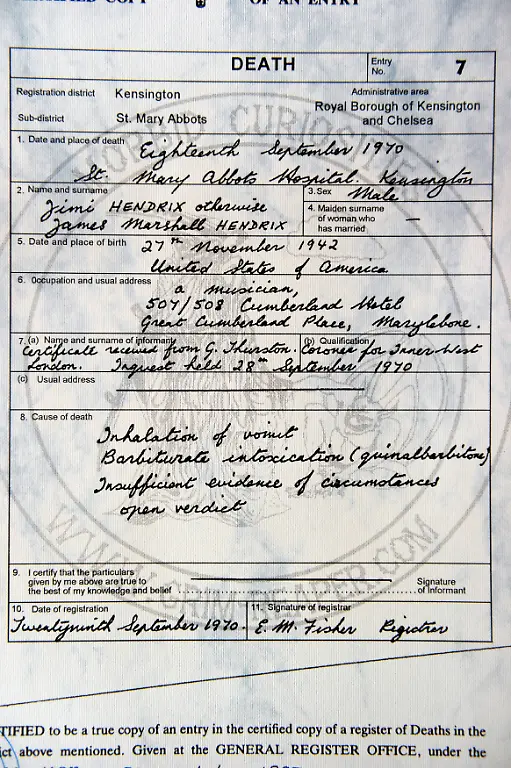 OF AN ENTRY
DEATH
Entry No. 7
Registration district Kensington
Administrative area
Royal Borough of Kensington and Chelsea
Sub-district St. Mary Abbots
1. Date and place of death Eighteenth September 1970
St. Mary Abbots Hospital. Kensington
2. Name and surname
Jimi HENDRIX otherwise
James Marshall HENDRIX
3. Sex Male
4. Maiden surname
of woman who
has married —
5. Date and place of birth 27th November 1942
United States of America
6. Occupation and usual address a musician,
507/508 Cumberland Hotel
Great Cumberland Place, Marylebone.
7. (a) Name and surname of informant (b) Qualification
Certificate received from G. Thurston. Coroner for Inner West
London. Inquest held 28th September 1970
(c) Usual address
8. Cause of death
Inhalation of vomit
Barbiturate intoxication (quinalbarbitone)
Insufficient evidence of circumstances
open verdict
9. I certify that the particulars
given by me above are true to
the best of my knowledge and belief
Signature
of informant
10. Date of registration
Twentyninth September 1970.
11. Signature of registrar
E. M. Fisher Registrar
TIFIED to be a true copy of an entry in the certified copy of a register of Deaths in the
ct above mentioned. Given at the GENERAL REGISTER OFFICE, under the
MORBID CURIOSITIES
WWW.GRIMREAPER.COM